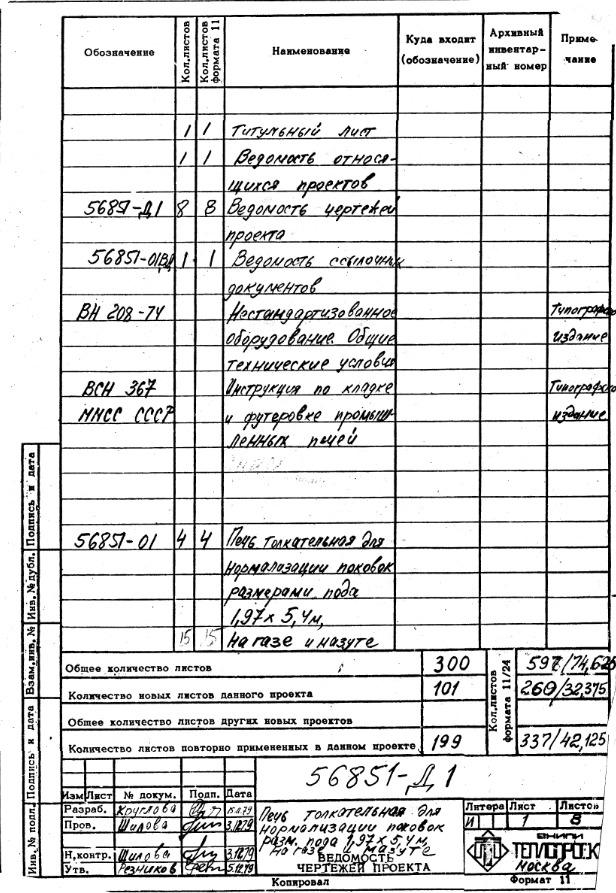 Обозначение Кол.листов Кол.листов формата 11 Наименование Куда входит (обозначение) Архивный инвентар-ный номер Приме-чание
1 1 Титульный лист
1 1 Ведомость относя-
щихся проектов
56851-Д1 8 8 Ведомость чертежей
проекта
56851-01ВД 1 1 Ведомость ссылочных
документов
ВН 208-74 Нестандартизованное Типографско
оборудование. Общие издание
технические условия
ВСН 367 Инструкция по кладке Типографско
ММСС СССР и футеровке промыш- издание
ленных печей
56851-01 4 4 Печь толкательная для
нормализации поковок
размерами пода
1,97 х 5,4м,
15 15 на газе и мазуте
Общее количество листов 300 Кол.листов формата 11/24
Количество новых листов данного проекта 101 260/32,375
Общее количество листов других новых проектов
Количество листов повторно примененных в данном проекте 199 337/42,125
56851-Д1
Изм Лист № докум. Подп. Дата
Разраб. Круглова
Пров. Шилова 3.12.79
Н.контр. Шилова 3.12.79
Утв. Резников 5.12.79
Печь толкательная для
нормализации поковок
разм. пода 1,97х5,4м,
на газе и мазуте
ВЕДОМОСТЬ
ЧЕРТЕЖЕЙ ПРОЕКТА
Литера Лист Листов
И 1 8
ВНИПИ
ТЕПЛОПРОЕКТ
Москва
Копировал Формат 11
Инв.№ подл. Подпись и дата Взам.инв.№ Инв.№дубл. Подпись и дата